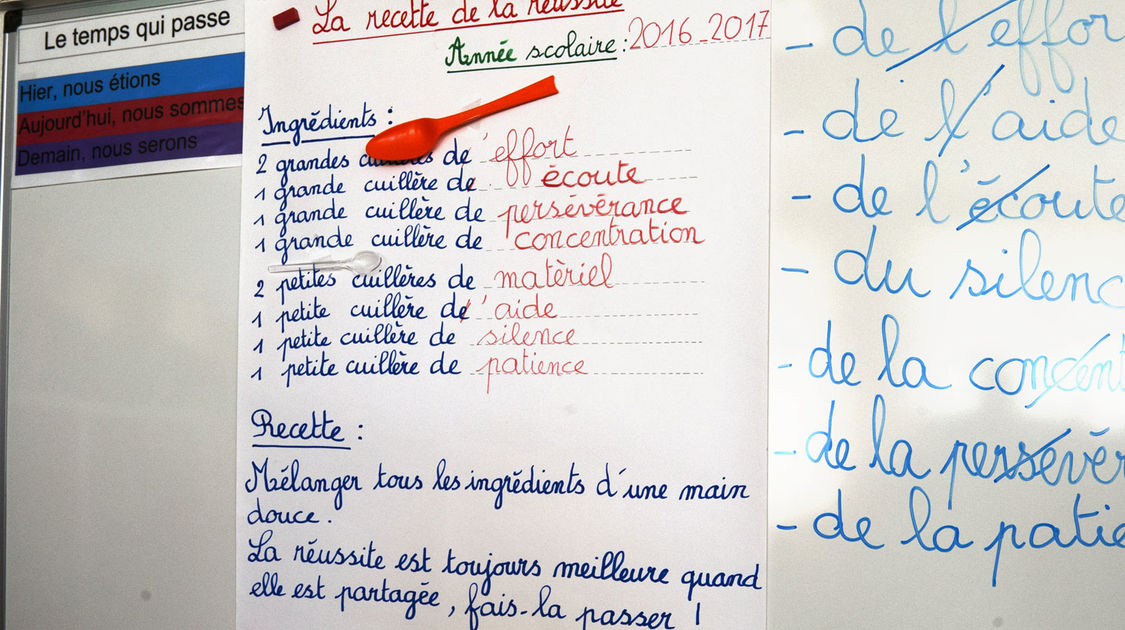 Le temps qui passe
Hier, nous étions
Aujourd'hui, nous sommes
Demain, nous serons
La recette de la réussite
Année scolaire : 2016-2017
Ingrédients :
2 grandes de l'effort
1 grande cuillère de écoute
1 grande cuillère de persévérance
1 grande cuillère de concentration
2 petites cuillères de matèriel
1 petite cuillère de l'aide
1 petite cuillère de silence
1 petite cuillère de patience
Recette :
Mélanger tous les ingrédients d'une main
douce.
La réussite est toujours meilleure quand
elle est partagée, fais-la passer !
- de l'effor
- de l'aide
- de l'écoute
- du silenc
- de la concent
- de la persévér
- de la patie